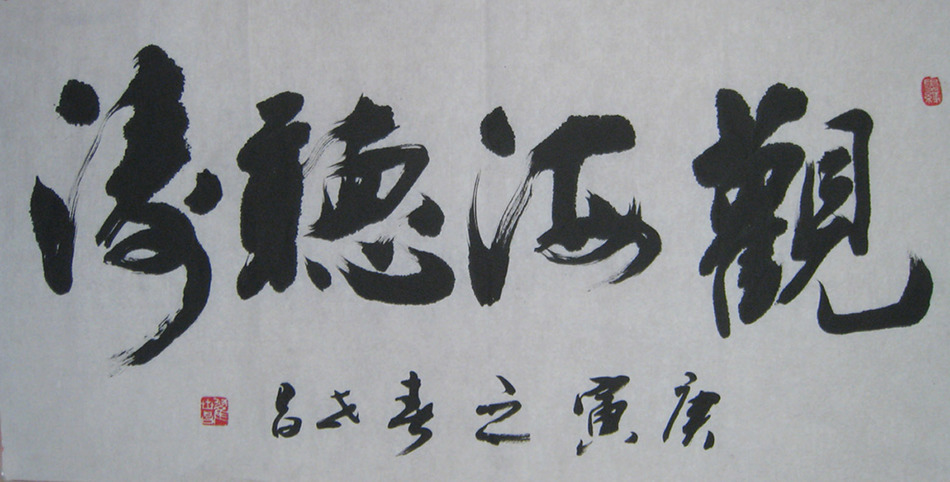 觀海聽濤
庚寅之春